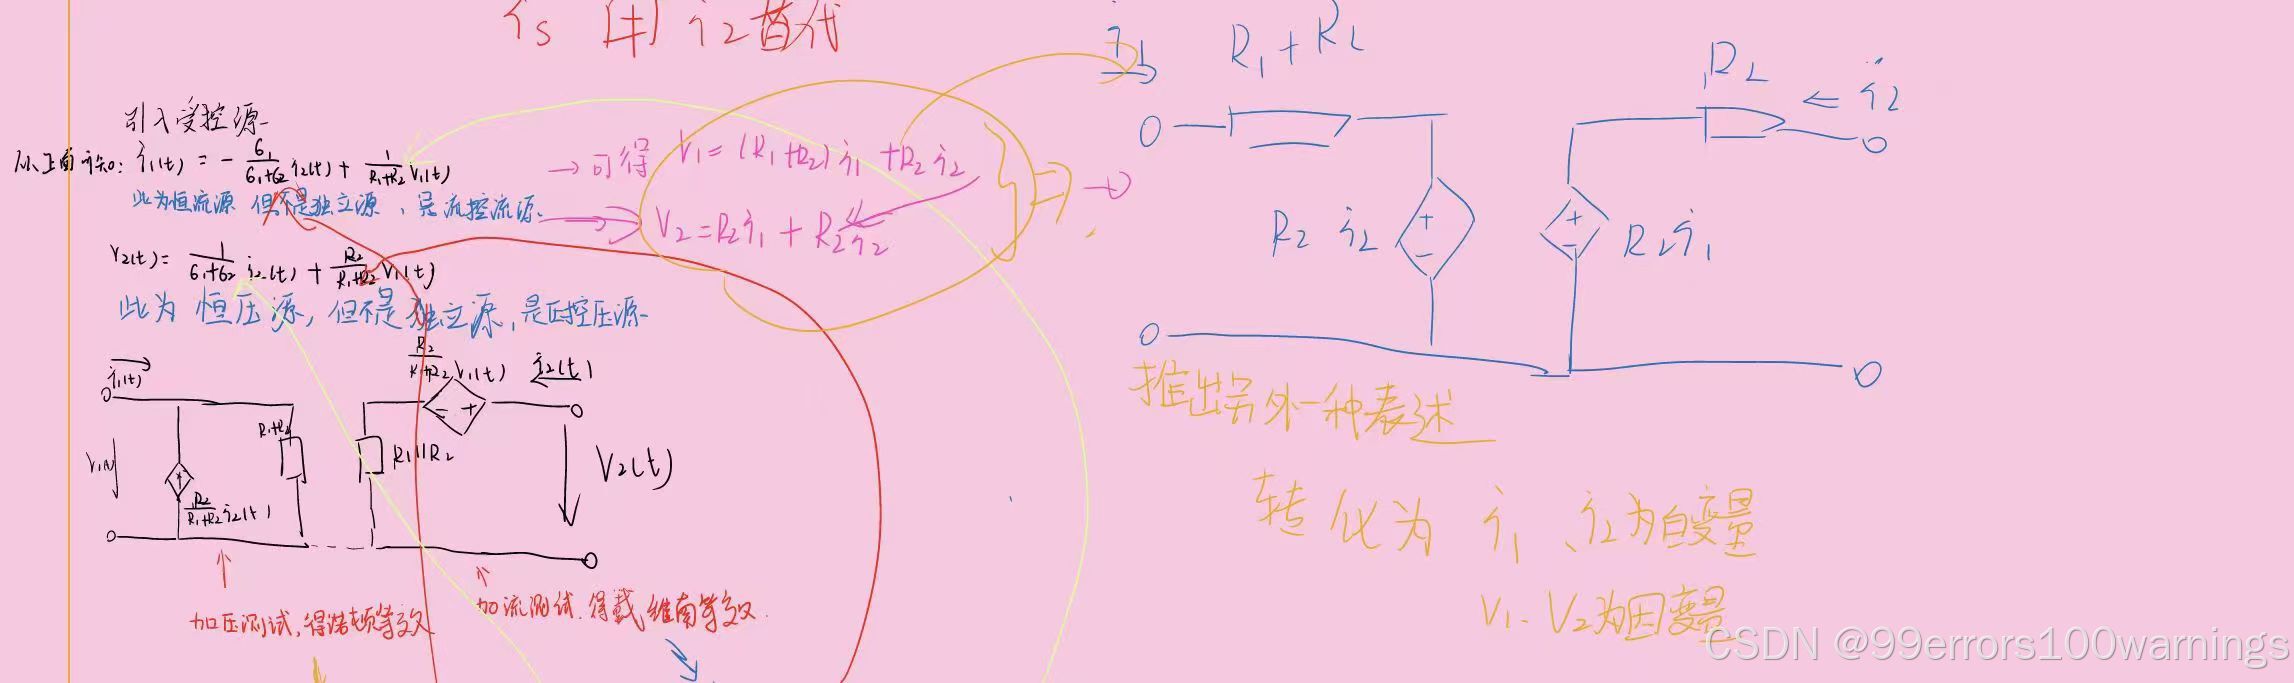 is 用 i2替代
引入受控源
从上面可知: i1(t) = - G1/(G1+G2) i2(t) + 1/(R1+R2) v1(t)
此为恒流源 但不是独立源，是流控流源
V2(t) = 1/(G1+G2) i2(t) + R2/(R1+R2) V1(t)
此为恒压源，但不是独立源，是压控压源
→可得 V1=(R1+R2)i1+R2i2
V2=R2i1+R2i2
i1(t)
V1(t)
R2/(R1+R2) i2(t)
R1+R2
R1||R2
R2/(R1+R2) V1(t)
i2(t)
V2(t)
加压测试,得诺顿等效
加流测试.得戴维南等效.
i1
R1+R2
R2 i2
R2i1
R2
i2
推出另外一种表述
转化为 i1、i2为自变量
V1、V2为因变量
CSDN @99errors100warnings